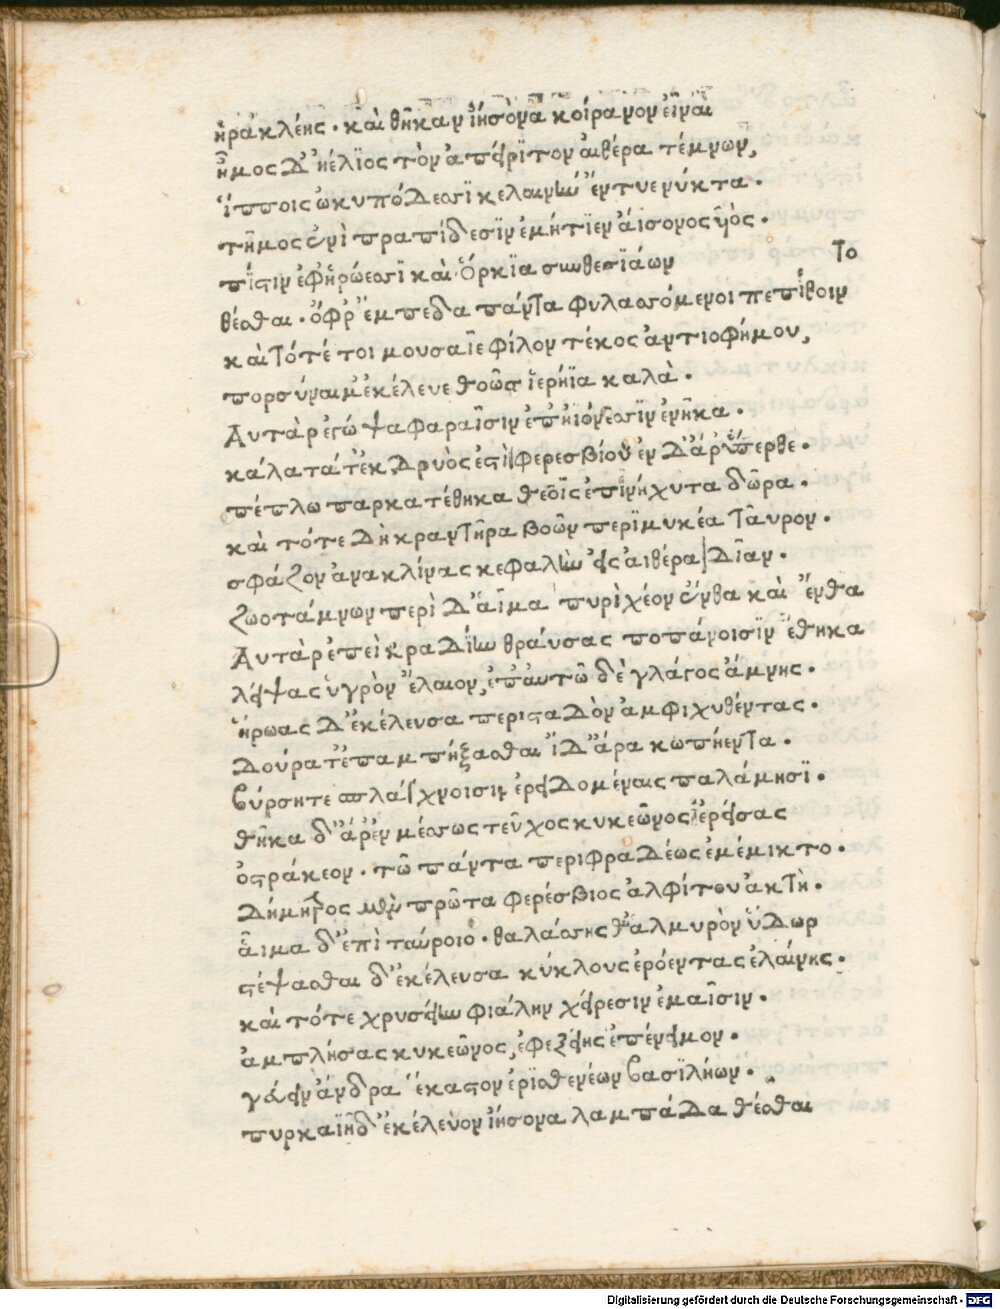 ἡρακλέης · καὶ θῆκαν ἰήσονα κοίρανον εἶναι
ἦμος δ' ἠέλϊος τὸν ἀπείρϊτον αἰθέρα τέμνων,
ἵπποις ὠκυπόδεσσϊ κελαινὴν ἔντυε νύκτα ·
τῆμος ἐνὶ πραπίδεσϊν ἐμήτϊεν αἴσονος υἱός ·
πίστιν ἐφ' ἡρώεσσϊ καὶ ὅρκϊα συνθεσϊάων το
θέσθαι · ὄφρ' ἔμπεδα πάντα φυλασσόμενοι πεπίθοιν
καὶ τότέ τοι μουσαῖε φίλον τέκος ἀντιοφήμου,
πορσύναι μ' ἐκέλευε θοῶς ἱερήϊα καλὰ ·
Αυτὰρ ἐγώ ψαφαραῖσιν ἐπ' ἠιόνεσσϊν ἔνηκα ·
κάλα τά τ' ἐκ δρυὸς ἐστὶ φερεσβίου ἐν δ' ἄρ' ὕπερθε ·
πέπλω παρκατέθηκα θεοῖς ἐπινήχυτα δῶρα ·
καὶ τότε δὴ κραντῆρα βοῶν περϊμυκέα ταῦρον ·
σφάζον ἀνακλίνας κεφαλὴν εἰς αἰθέρα δῖαν ·
ζωοτάμνων περὶ δ' αἷμα πυρὶ χέον ἔνθα καὶ ἔνθα
Αυτὰρ ἐπεὶ κραδίην θραύσας ποπάνοισϊν ἔθηκα
λείψας ὑγρὸν ἔλαιον, ἐπ' αὐτῶ δὲ γλάγος ἄμνης ·
ἥρωας δ' ἐκέλευσα περισταδὸν ἀμφιχυθέντας ·
δούρα τ' ἐπαμπήξασθαι ἰδ' ἄρα κωπήεντα ·
βύρση τε σπλάγχνοισιν ἐρειδομέναις παλάμησϊ ·
θῆκα δ' ἄρ' ἐν μέσσως τεῦχος κυκεῶνος ἱερείσας
ὀστράκεον · τῶ πάντα περιφραδέως ἐμέμικτο ·
Δήμητρος μὲν πρῶτα φερέσβιος ἀλφίτου ἀκτὴ ·
αἷμα δ' ἐπὶ ταύροιο · θαλάσσης θ' ἁλμυρὸν ὕδωρ
στέψασθαι δ' ἐκέλευσα κύκλους ἐρόεντας ἐλαίνης ·
καὶ τότε χρυσείην φιάλην χείρεσιν ἐμαῖσιν ·
ἀμπλήσας κυκεῶνος, ἐφεξείης ἐπένειμον ·
γεύειν ἄνδρα ἕκαστον ἐρϊσθενέων βασϊλήων ·
πυρκαϊὴ δ' ἐκέλευον ἰήσονα λαμπάδα θέσθαι
Digitalisierung gefördert durch die Deutsche Forschungsgemeinschaft - DFG